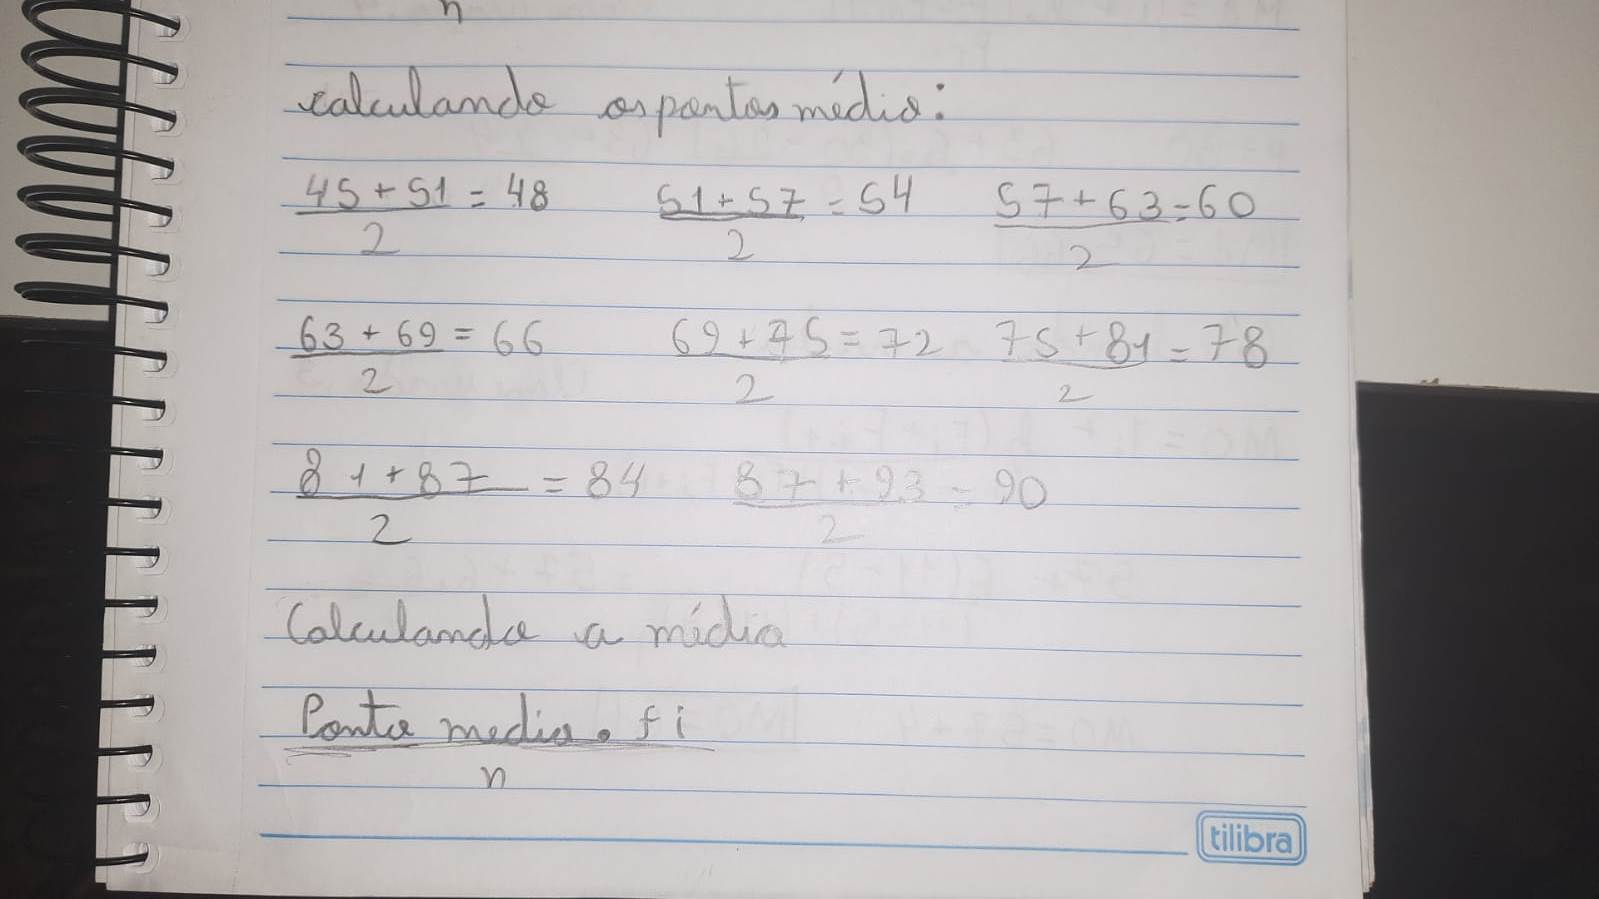 n
calculando os pontos médio:
45 + 51 = 48 51 + 57 = 54 57 + 63 = 60
2 2 2
63 + 69 = 66 69 + 75 = 72 75 + 81 = 78
2 2 2
81 + 87 = 84 87 + 93 = 90
2 2
Calculando a média
Ponto medio . fi
n
tilibra